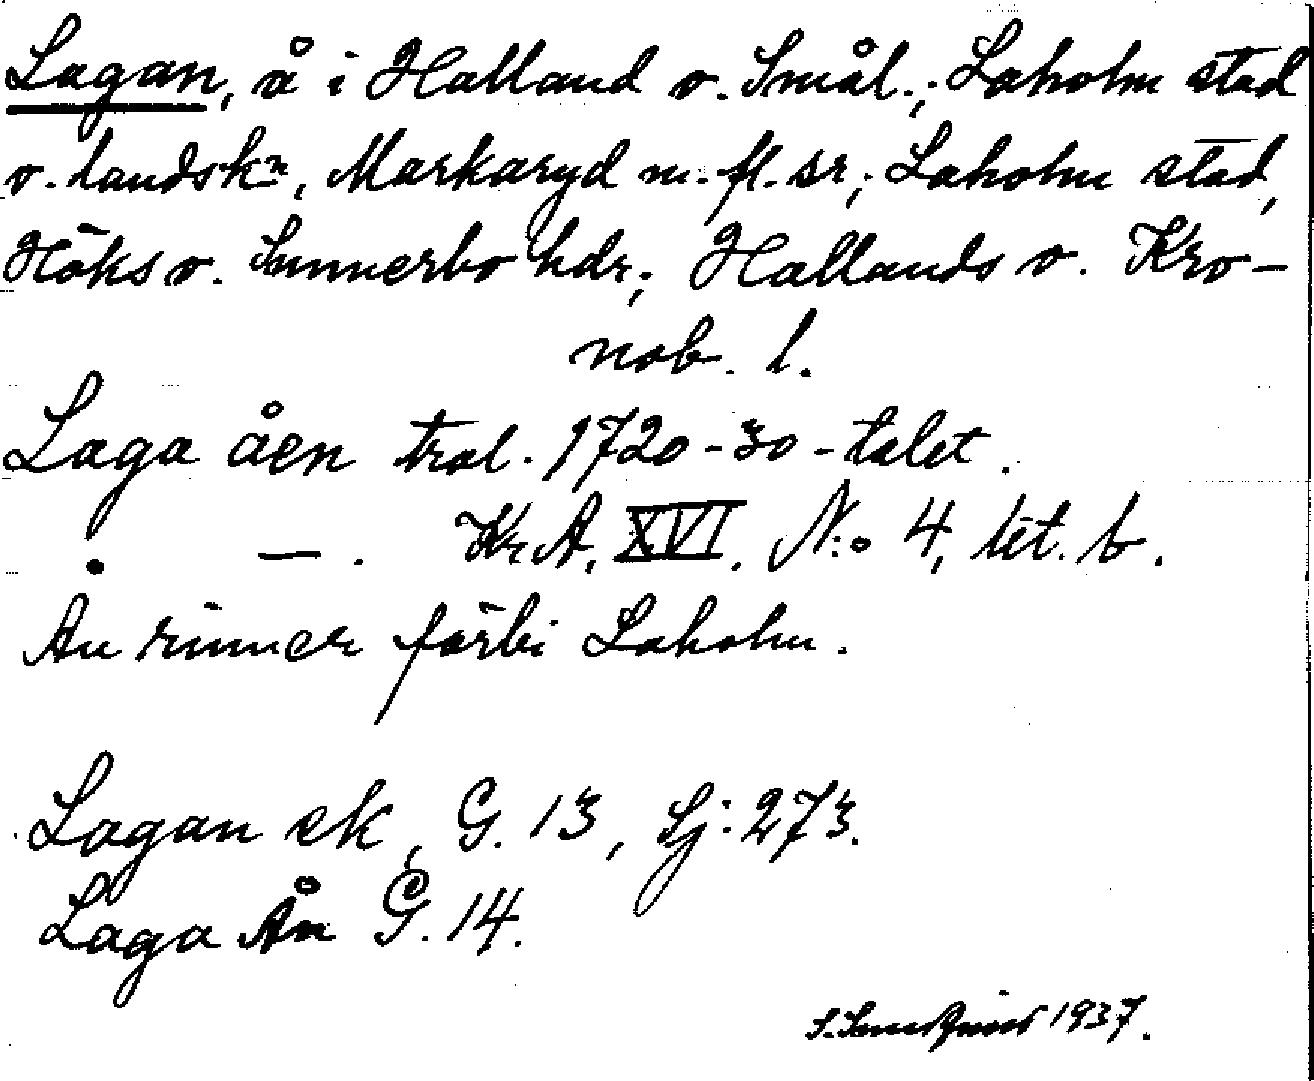 Lagan, å i Halland o. Smål.; Laholm stad
o. landskn, Markaryd m. fl. sr; Laholm stad,
Höks o. Sunnerbo hdr; Hallands o. Kro-
nob. l.
Laga åen trol. 1720-30-talet.
" — . Kr.A. XVI. N:o 4, lit. b.
Ån rinner förbi Laholm.
Lagan ek, G. 13, Sj: 273.
Laga Ån G. 14.
1937.